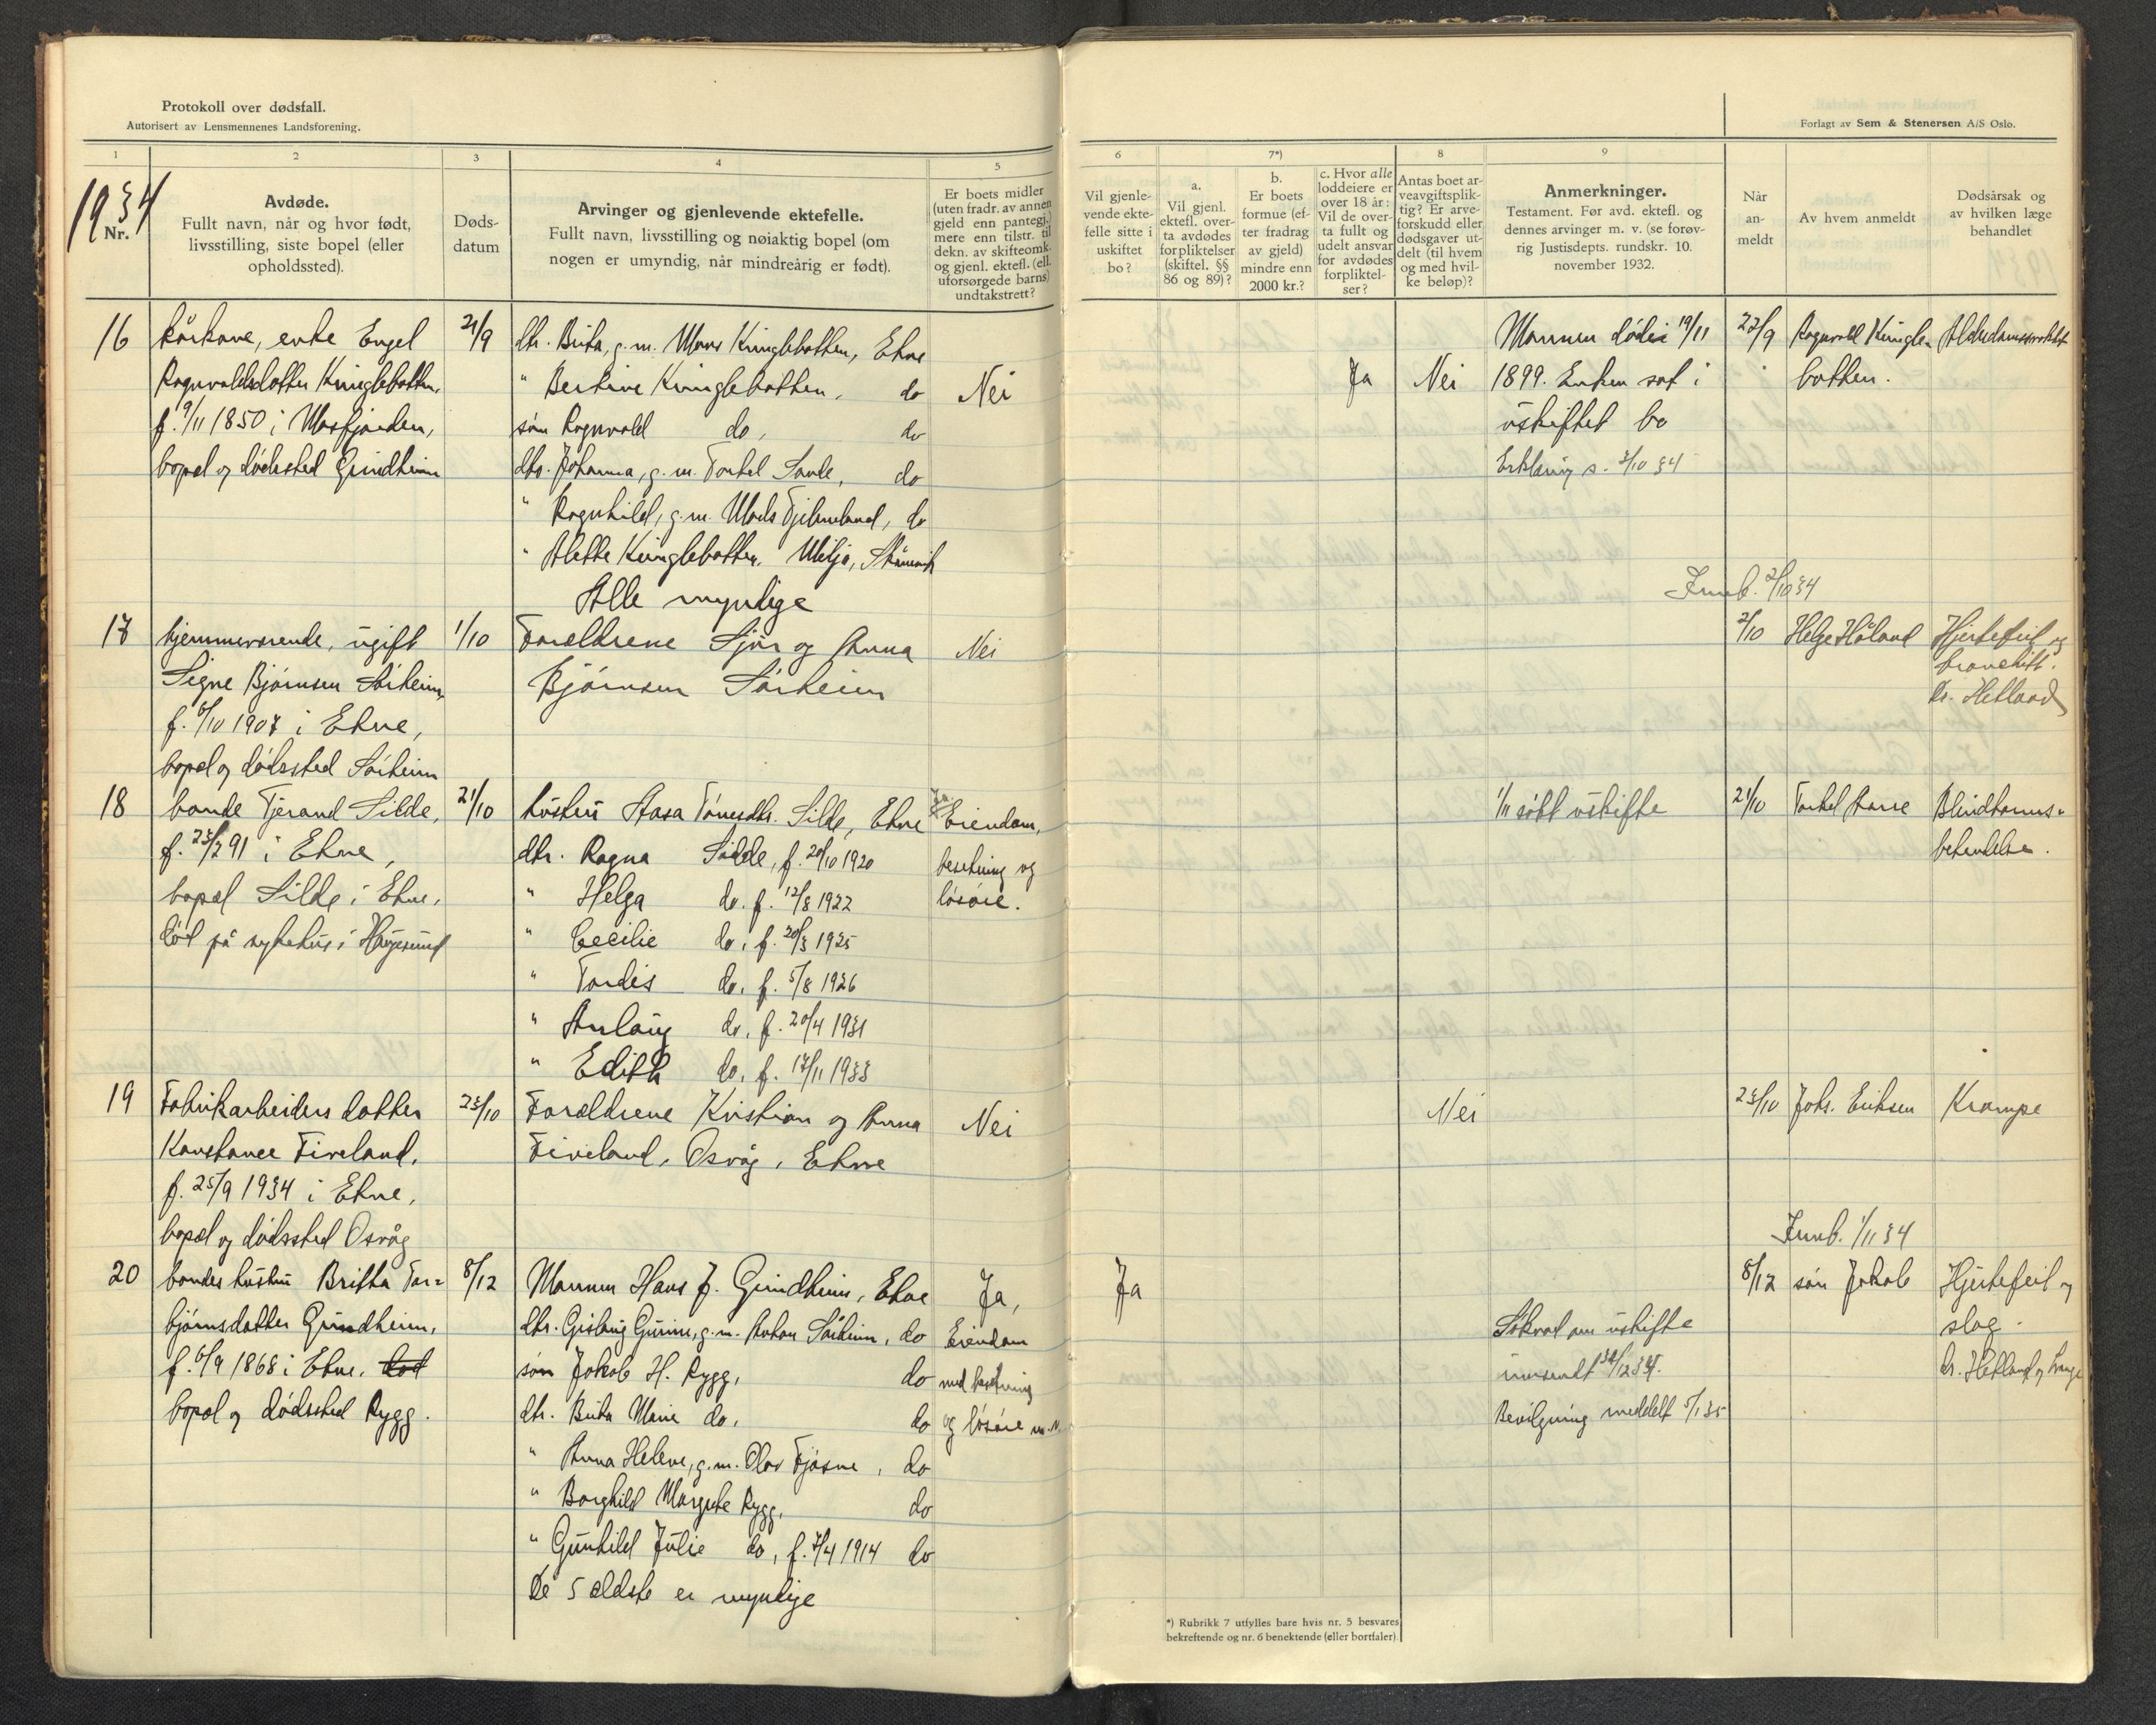 Protokoll over dødsfall.
Autorisert av Lensmennenes Landsforening.
Forlagt av Sem & Stenersen A/S Oslo.
1 2 3 4 5 6 7*) 8 9
1934
Nr.
Avdøde.
Fullt navn, når og hvor født,
livsstilling, siste bopel (eller
opholdssted).
Døds-
datum
Arvinger og gjenlevende ektefelle.
Fullt navn, livsstilling og nøiaktig bopel (om
nogen er umyndig, når mindreårig er født).
Er boets midler
(uten fradr. av annen
gjeld enn pantegj.)
mere enn tilstr. til
dekn. av skifteomk.
og gjenl. ektefl. (ell.
uforsørgede barns)
undtakstrett?
Vil gjenle-
vende ekte-
felle sitte i
uskiftet
bo?
a.
Vil gjenl.
ektefl. over-
ta avdødes
forpliktelser
(skiftel. §§
86 og 89)?
b.
Er boets
formue (ef-
ter fradrag
av gjeld)
mindre enn
2000 kr.?
c. Hvor alle
loddeiere er
over 18 år:
Vil de over-
ta fullt og
udelt ansvar
for avdødes
forpliktel-
ser?
Antas boet ar-
veavgiftsplik-
tig? Er arve-
forskudd eller
dødsgaver ut-
delt (til hvem
og med hvil-
ke beløp)?
Anmerkninger.
Testament. Før avd. ektefl. og
dennes arvinger m. v. (se forøv-
rig Justisdepts. rundskr. 10.
november 1932.
Når
an-
meldt
Av hvem anmeldt
Dødsårsak og
av hvilken læge
behandlet
16
kårkone, enke Engel
Ragnvaldsdotter Kvinglebotten,
f. 9/11 1850 i Masfjorden,
bopel og dødssted Grindheim
21/9
dtr. Brita, g. m. Mons Kvinglebotten, Etne
" Bertine Kvinglebotten, do
søn Ragnvald do, do
dtr. Johanna, g. m. Torkel Sande, do
" Ragnhild, g. m. Mads Fjelmeland, do
" Alette Kvinglebotten, Milje, Skånevik
Alle myndige
Nei
Ja
Nei
Mannen døde 19/11
1899. Enken sat i
uskiftet bo
Erklæring s. 2/10 34
22/9
Ragnvald Kvingle-
botten.
Alderdomssvakhet
Innb. 2/10 34
17
hjemmeværende, ugift
Signe Bjørnsen Sørheim,
f. 6/10 1907 i Etne,
bopel og dødssted Sørheim
1/10
Foreldrene Sjur og Anna
Bjørnsen Sørheim
Nei
2/10
Helge Håland
Hjertefeil og
bronchitt.
Dr. Hetland
18
bonde Tjerand Silde,
f. 23/2 91 i Etne,
bopel Silde i Etne,
død på sykehus i Haugesund
21/10
hustru Aasa Tønnesdtr. Silde, Etne
dtr. Ragna Silde, f. 20/10 1920
" Helga do. f. 12/8 1922
" Cecilie do, f. 20/3 1925
" Tordis do, f. 5/8 1926
" Anlaug do, f. 20/4 1931
" Edith do, f. 17/11 1933
Ja
Eiendom,
besetning og
løsøre.
1/11 søkt uskifte
21/10
Torkel Aarre
Blindtarms-
betendelse.
19
Fabrikarbeiders dotter
Konstance Fiveland,
f. 25/9 1934 i Etne,
bopel og dødssted Osvåg
23/10
Foreldrene Kristian og Anna
Fiveland, Osvåg, Etne
Nei
Nei
23/10
Johs. Eriksen
Krampe
Innb. 1/11 34
20
bondes hustru Britha Tor-
bjørnsdotter Grindheim,
f. 6/9 1868 i Etne, død
bopel og dødssted Rygg.
8/12
Mannen Hans J. Grindheim, Etne
dtr. Gislaug Gurine, g. m. Anton Sørheim, do
søn Jakob H. Rygg, do
dtr. Brita Marie do, do
" Anna Helene, g. m. Olav Fjøsne, do
" Borghild Margrete Rygg, do
" Gunhild Julie do, f. 7/4 1914 do
De 5 eldste er myndige
Ja,
Eiendom
med besetning
og løsøre m. m.
Ja
Søknad om uskifte
innsendt 31/12 34.
Bevilgning meddelt 5/1 35
8/12
søn Jakob
Hjertefeil og
slag.
dr. Hetland og
*) Rubrikk 7 utfylles bare hvis nr. 5 besvares
bekreftende og nr. 6 benektende (eller bortfaler)